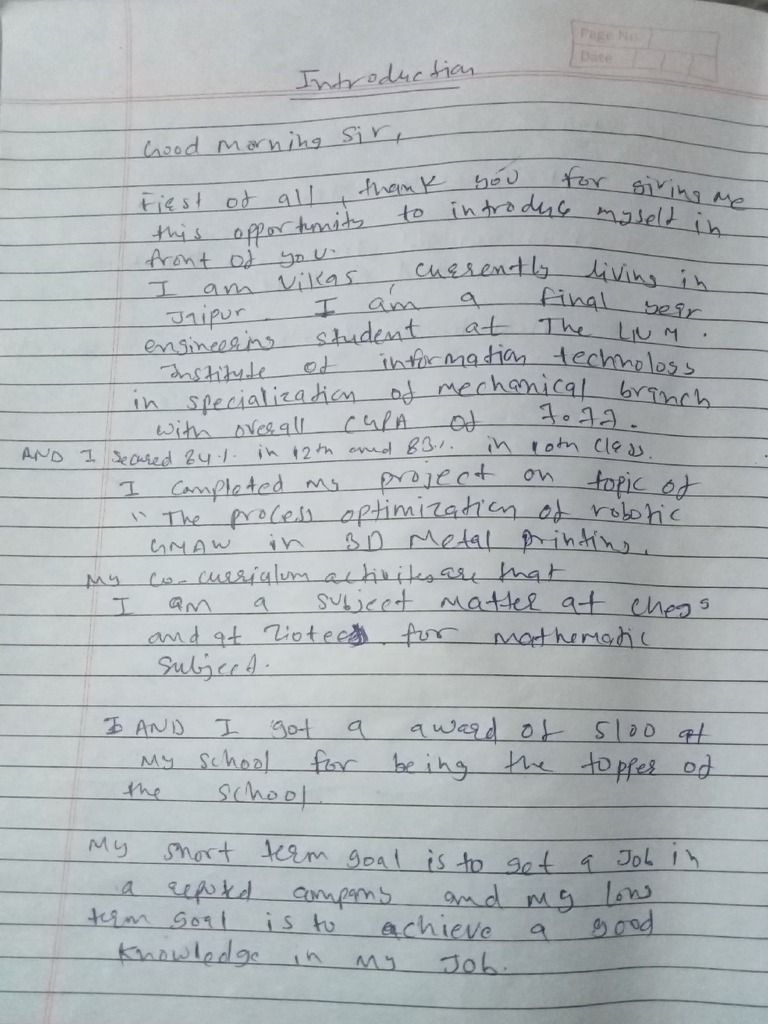 Page No.
Date
Introduction
Good Morning Sir,
First of all, thank you for giving me
this opportunity to introduce myself in
front of you.
I am Vikas, currently living in
Jaipur. I am a final year
engineering student at The LNM
Institute of information technology
in specialization of mechanical branch
with overall CGPA of 7.77.
AND I secured 84% in 12th and 83% in 10th class.
I completed my project on topic of
"The process optimization of robotic
GMAW in 3D Metal printing.
My co-curriculum activities are that
I am a subject matter at chegg
and at for mathematic
subject.
AND I got a award of 5100 at
My school for being the topper of
the school.
My short term goal is to get a Job in
a reputed company and my long
term goal is to achieve a good
knowledge in my Job.